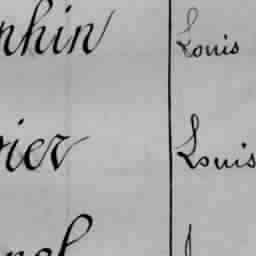 nhin Louis
rier Louis